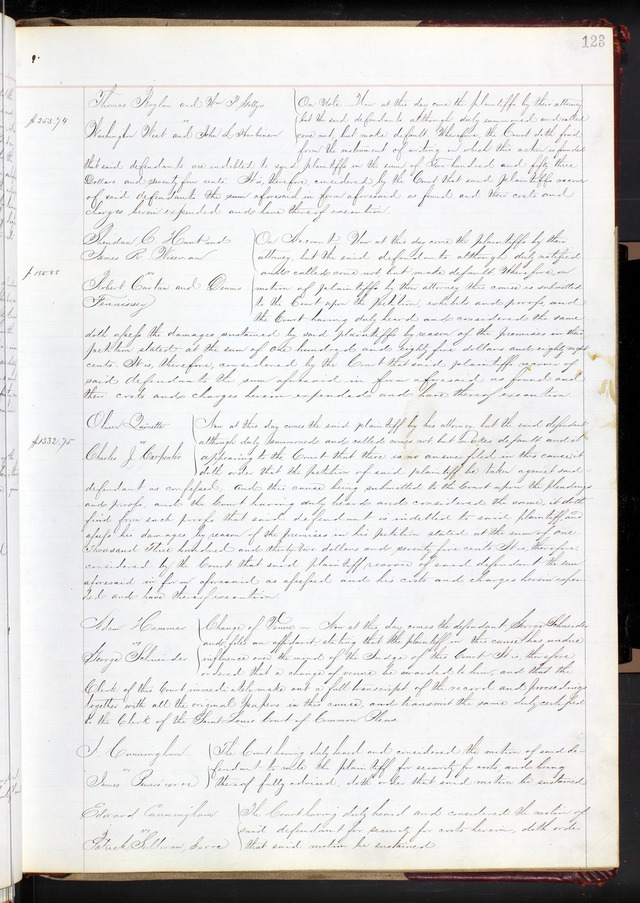 123
Thomas Boylan and Wm P. { On Note. Now at this day come the plaintiffs by their attorney
$253.74 but the said defendants although duly summoned and called
Washington West and John L. { come not, but make default. Wherefore, the Court doth find
from the instrument of writing on which this action is founded
that said defendants are indebted to said plaintiffs in the sum of two hundred and fifty three
Dollars and seventy four cents. It is, therefore, considered by the Court that said plaintiffs recover
of said defendants the sum aforesaid in form aforesaid as found and their costs and
charges herein expended and have thereof execution.
Sheridan C. Hunt and { On Account. Now at this day come the plaintiffs by their
James R. attorney, but the said defendants although duly notified
vs and called come not but make default. Wherefore, on
Robert and Dennis { motion of plaintiffs by their attorney this cause is submitted
Fennissey to the Court upon the petition, exhibits and proofs and
the Court having duly heard and considered the same
doth assess the damages sustained by said plaintiffs by reason of the premises in their
petition stated at the sum of one hundred and eighty five dollars and eighty eight
cents. It is, therefore, considered by the Court that said plaintiffs recover of
said defendants the sum aforesaid in form aforesaid as found and
their costs and charges herein expended and have thereof execution.
{ Now at this day comes the said plaintiff by his attorney, but the said defendant
$1332.75 vs although duly summoned and called comes not, but makes default, and it
Charles J. Carpenter { appearing to the Court that there is no answer filed in this cause, it
doth order that the petition of said plaintiff be taken against said
defendant as confessed, and this cause being submitted to the Court upon the pleadings
and proofs, and the Court having duly heard and considered the same, it doth
find from such proofs that said defendant is indebted to said plaintiff and
assess his damages by reason of the premises in his petition stated at the sum of one
Thousand Three hundred and thirty two dollars and seventy five cents. It is therefore
considered by the Court that said plaintiff recover of said defendant the sum
aforesaid in form aforesaid as assessed and his costs and charges herein expen-
ded and have thereof execution.
Adam Hammer { Change of Venue — Now at this day comes the defendant George Schneider
vs and files an affidavit stating that the plaintiff in this cause has undue
George Schneider { influence over the mind of the Judge of this Court. It is, therefore
ordered that a change of venue be awarded to him, and that the
Clerk of this Court immediately make out a full transcript of the record and proceedings
together with all the original papers in this cause, and transmit the same duly certified
to the Clerk of the Saint Louis Court of Common Pleas.
J. Cunningham { The Court having duly heard and considered the motion of said de-
vs fendant to rule the plaintiff for security for costs, and being
James { thereof fully advised, doth order that said motion be sustained
Edward Cunningham { The Court having duly heard and considered the motion of
vs said defendant for security for costs herein, doth order
Patrick Sullivan, { that said motion be sustained